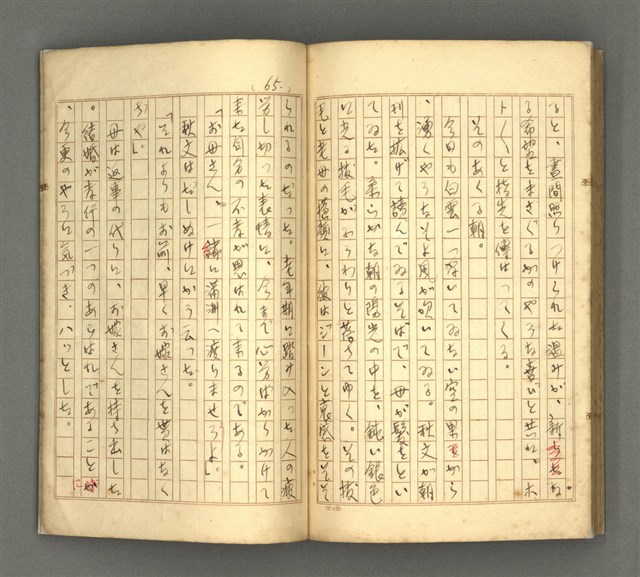 ると、晝間照りつけられた温みが、新たな
る希望をまさぐるかのやうな喜びと共に、ホ
ト〱と指先を傳はつてくる。
そのあくる朝。
今日も白雲一つ浮いてゐない空の果から
、湧くやうなそよ風が吹いてゐる。秋文が朝
刊を拡げて読んでゐるそばで、母が髪をとい
てゐた。柔らかな朝の陽光の中を、鈍い銀色
に光る抜毛がふわりふわりと落ちてゆく。その抜
毛と老母の横顔に、彼はジーンと哀感をそゝ
(65.)
られるのだつた。老年期に踏み入つた人の疲
労し切つた表情に、今まで心労ばかりかけて
来た自分の不孝が思はれて来るのである。
「お母さん、一緒に満洲へ渡りませうよ」。
秋文はだしぬけにかう云つた。
「それよりもお前、早くお嫁さんを貰はなく
ちや」。
母は返事の代りに、お嫁さんを持ち出した
。結婚が孝行の一つのあらはれであること
に
、今更のやうに気づき、ハッとした。